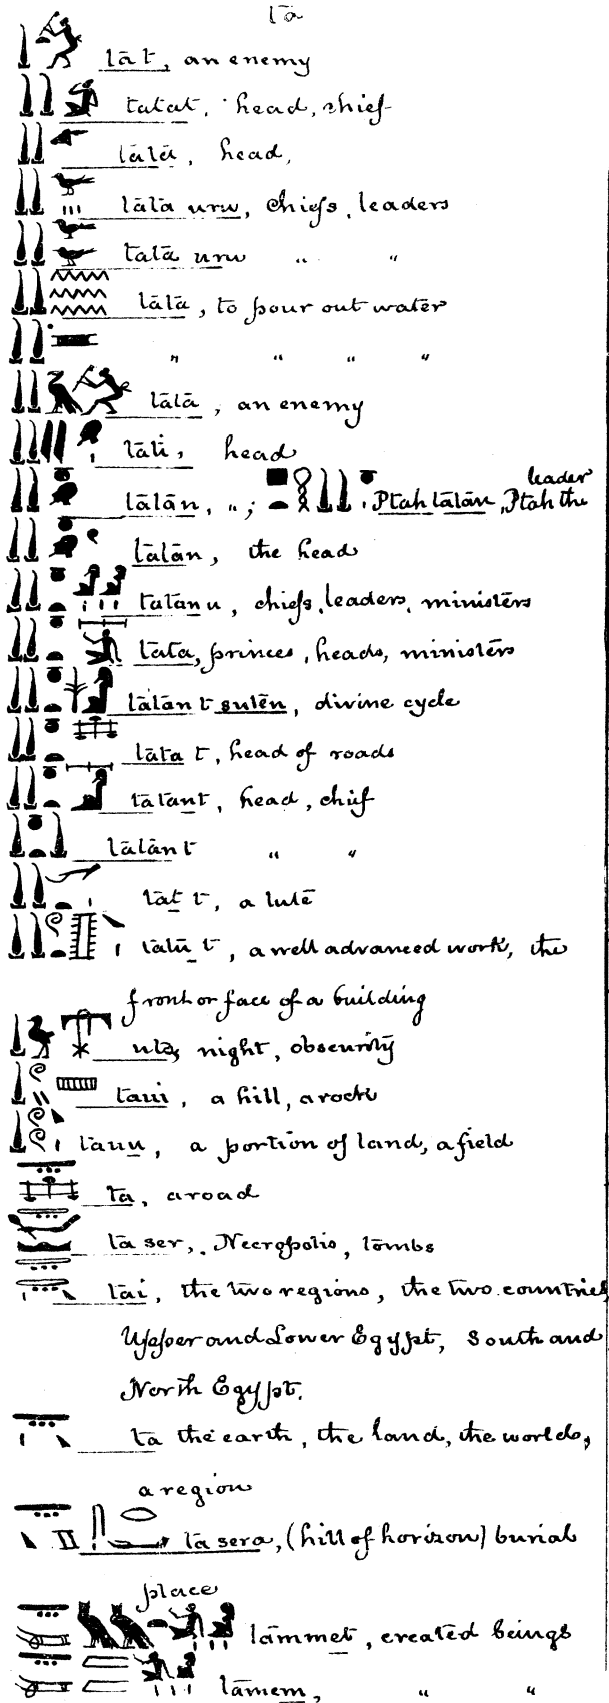 tā
tāt, an enemy
tatat, head, chief
tātā, head,
tātā uru, chiefs, leaders
tatā uru " "
tātā, to pour out water
" " " "
tātā, an enemy
tāti, head
leader
tātān, "; Ptah tātān, Ptah the
tātān, the head
tātānu, chiefs, leaders, ministers
tata, princes, heads, ministers
tātān t suten, divine cycle
tāta t, head of roads
tatant, head, chief
tātān t " "
tāt t, a lute
tatū t, a well advanced work, the
front or face of a building
uta, night, obscurity
taui, a hill, a rock
tauu, a portion of land, a field
ta, a road
ta ser, Necropolis, tombs
tai, the two regions, the two countries
Upper and Lower Egypt, South and
North Egypt.
ta the earth, the land, the world,
a region
ta sera, (hill of horizon) burial
place
tāmmet, created beings
tāmem, " "